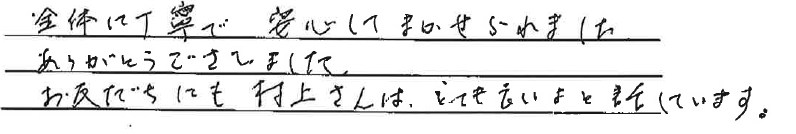 全体に丁寧で 安心してまかせられました
ありがとうございました
お友だちにも 村上さんは、とても良いよと話しています。